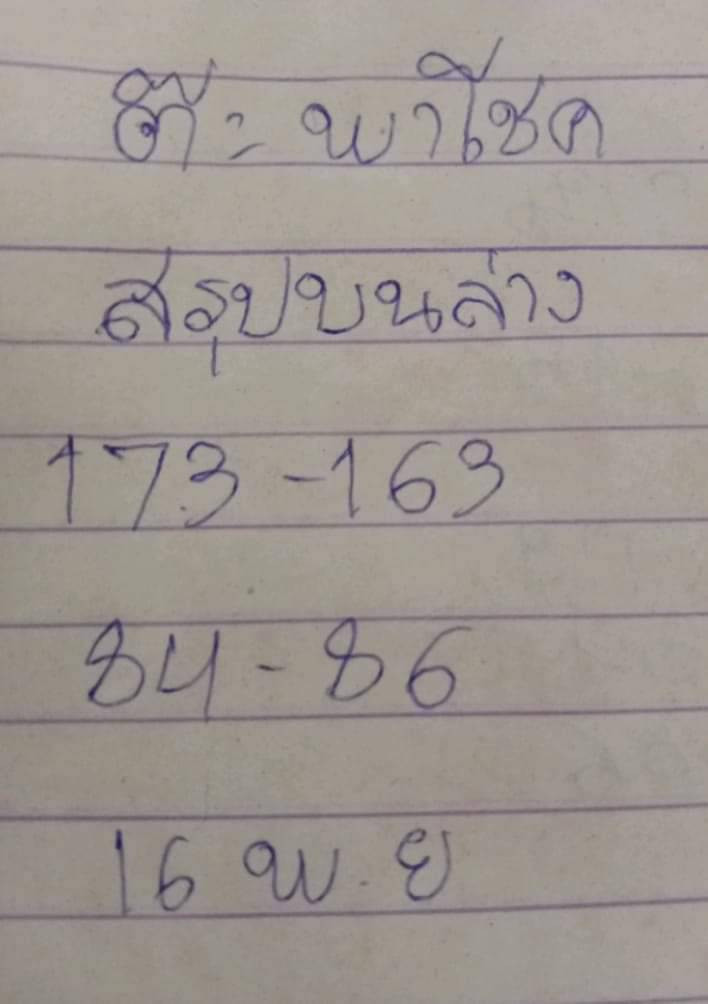 ต๊ะ พาโชค
สรุปบนล่าง
173-163
84-86
16 พ.ย